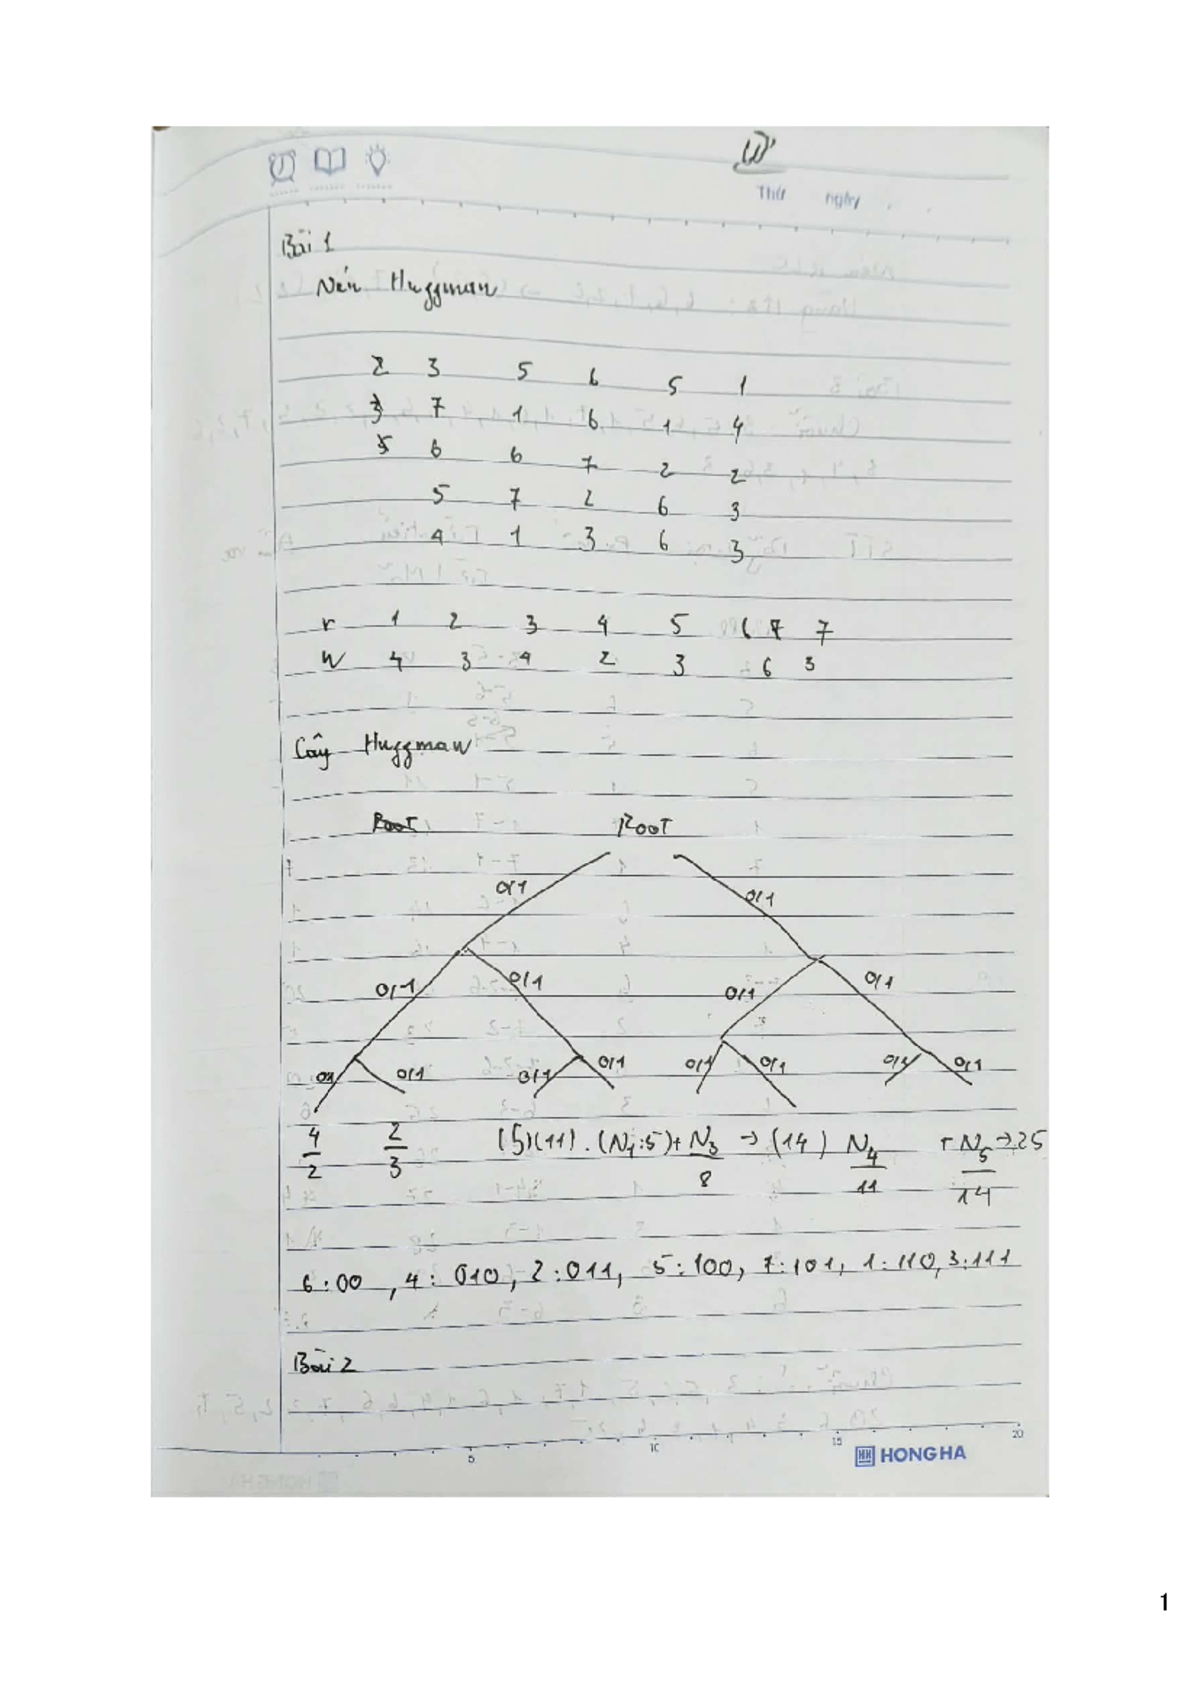 Thứ ngày
Bài 1
Nén Huffman
2 3 5 6 5 1
3 7 1 6 1 4
5 6 6 7 2 2
5 7 2 6 3
4 1 3 6 3
r 1 2 3 4 5 6 7 7
W 4 3 4 2 3 6 3
Cây Huffman
Root Root
0/1 0/1
0/1 0/1 0/1 0/1
0/1 0/1 0/1 0/1 0/1 0/1 0/1 0/1
4/2 2/3 (5)(11) . (N1:5)+ N3/8 → (14) N4/11 + N5/14 → 25
6:00, 4: 010, 2:011, 5:100, 7:101, 1:110, 3:111
Bài 2
5 10 15 20
HONG HA
1